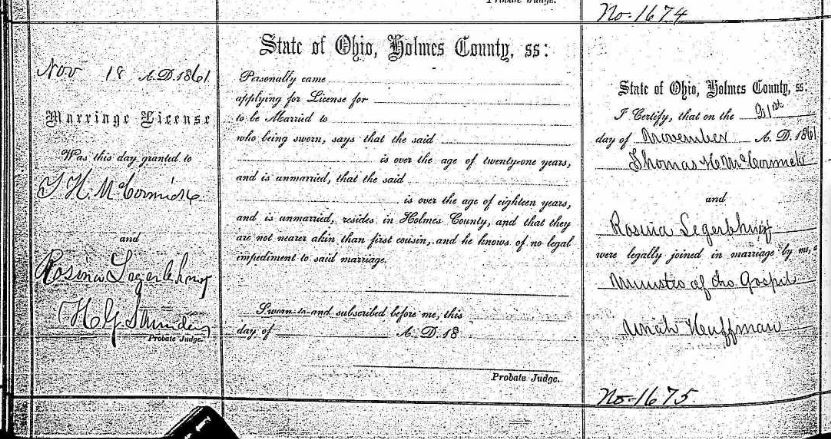 Probate Judge.
No. 1674
Nov 18 A.D. 1861
Marriage License
Was this day granted to
T. H. McCormick
and
Rosina Legerbknof
H G Saunders
Probate Judge.
State of Ohio, Holmes County, ss:
Personally came
applying for License for
to be Married to
who being sworn, says that the said
is over the age of twenty-one years,
and is unmarried, that the said
is over the age of eighteen years,
and is unmarried, resides in Holmes County, and that they
are not nearer akin than first cousin, and he knows of no legal
impediment to said marriage.
Sworn to and subscribed before me, this
day of A. D. 18
Probate Judge.
State of Ohio, Holmes County, ss:
I Certify, that on the 21st
day of November A. D. 1861
Thomas H McCormick
and
Rosina Legerbknof
were legally joined in marriage by me, a
Minister of the Gospel
Uriah Huffman
No. 1675